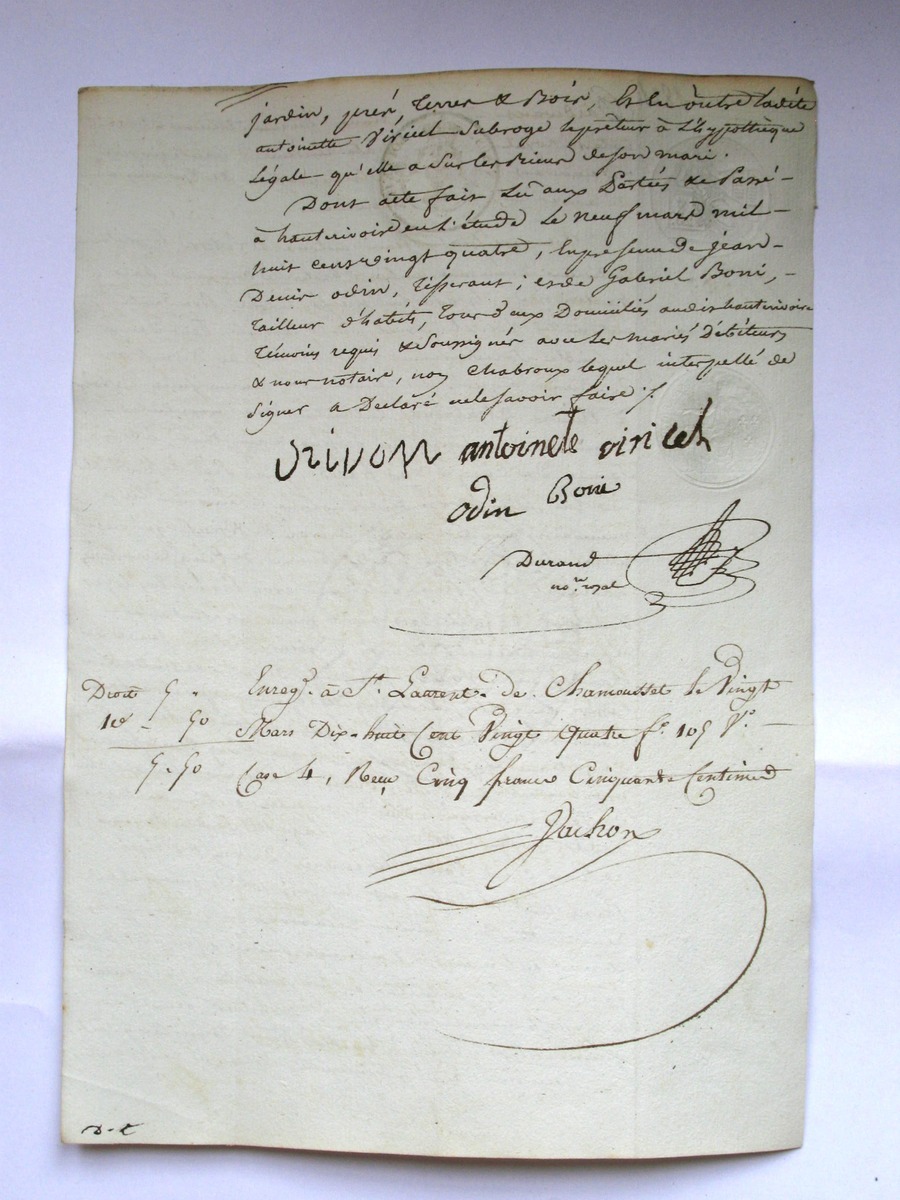 jardin, prés, Terres & Bois, Et En outre Ladite
antoinette Viricel Subroge le prêteur à L'hypothèque
Légale qu'elle a Sur les Bieux de son mari.
Dont acte fait Lu aux Parties & Passé -
à hauterivoire en L'étude Le neuf mars mil -
huit cent vingt quatre, En présence de jean -
Denis odin, Tisserant; et de Gabriel Boni, -
Tailleur d'habits, Tous deux Domiciliés audit hauterivoire
Témoins requis & Soussignés avec les mariés Débiteurs
& nous notaire, non Chabroux lequel interpellé de
Signer a Déclaré ne le Savoir faire ./.
antoinete viricel
odin Boni
Durand
nore. royal
Enregé. à St. Laurent. de. Chamousset le Vingt
Mars Dix-huit Cent Vingt Quatre fo. 105 Vo. -
Case 4, Reçu Cinq francs Cinquante Centimes
Droit 5 "
10e - 50
5. 50
D. t